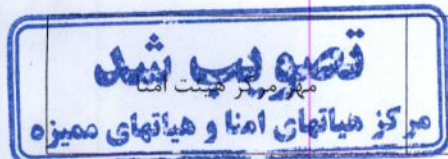 تصویب شد
مهر مرکز هیئت امنا
مرکز هیاتهای امنا و هیاتهای ممیزه